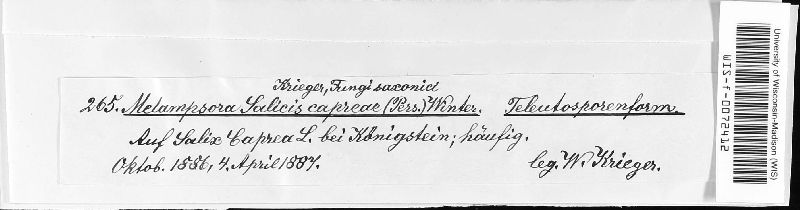 Krieger, Fungi saxonici
265. Melampsora Salicis capreae (Pers.) Winter. Teleutosporenform.
Auf Salix Caprea L. bei Königstein; häufig.
Oktob. 1886, 4. April 1887. leg. W. Krieger.
University of Wisconsin-Madison (WIS)
WIS-f-0072412